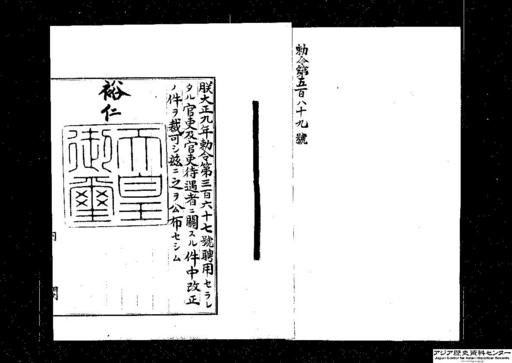 勅令第五百八十九號
朕大正九年勅令第三百六十七號聘用セラレ
タル官吏及官吏待遇者ニ關スル件中改正
ノ件ヲ裁可シ茲ニ之ヲ公布セシム
裕仁
天皇御璽
アジア歴史資料センター
Japan Center for Asian Historical Records